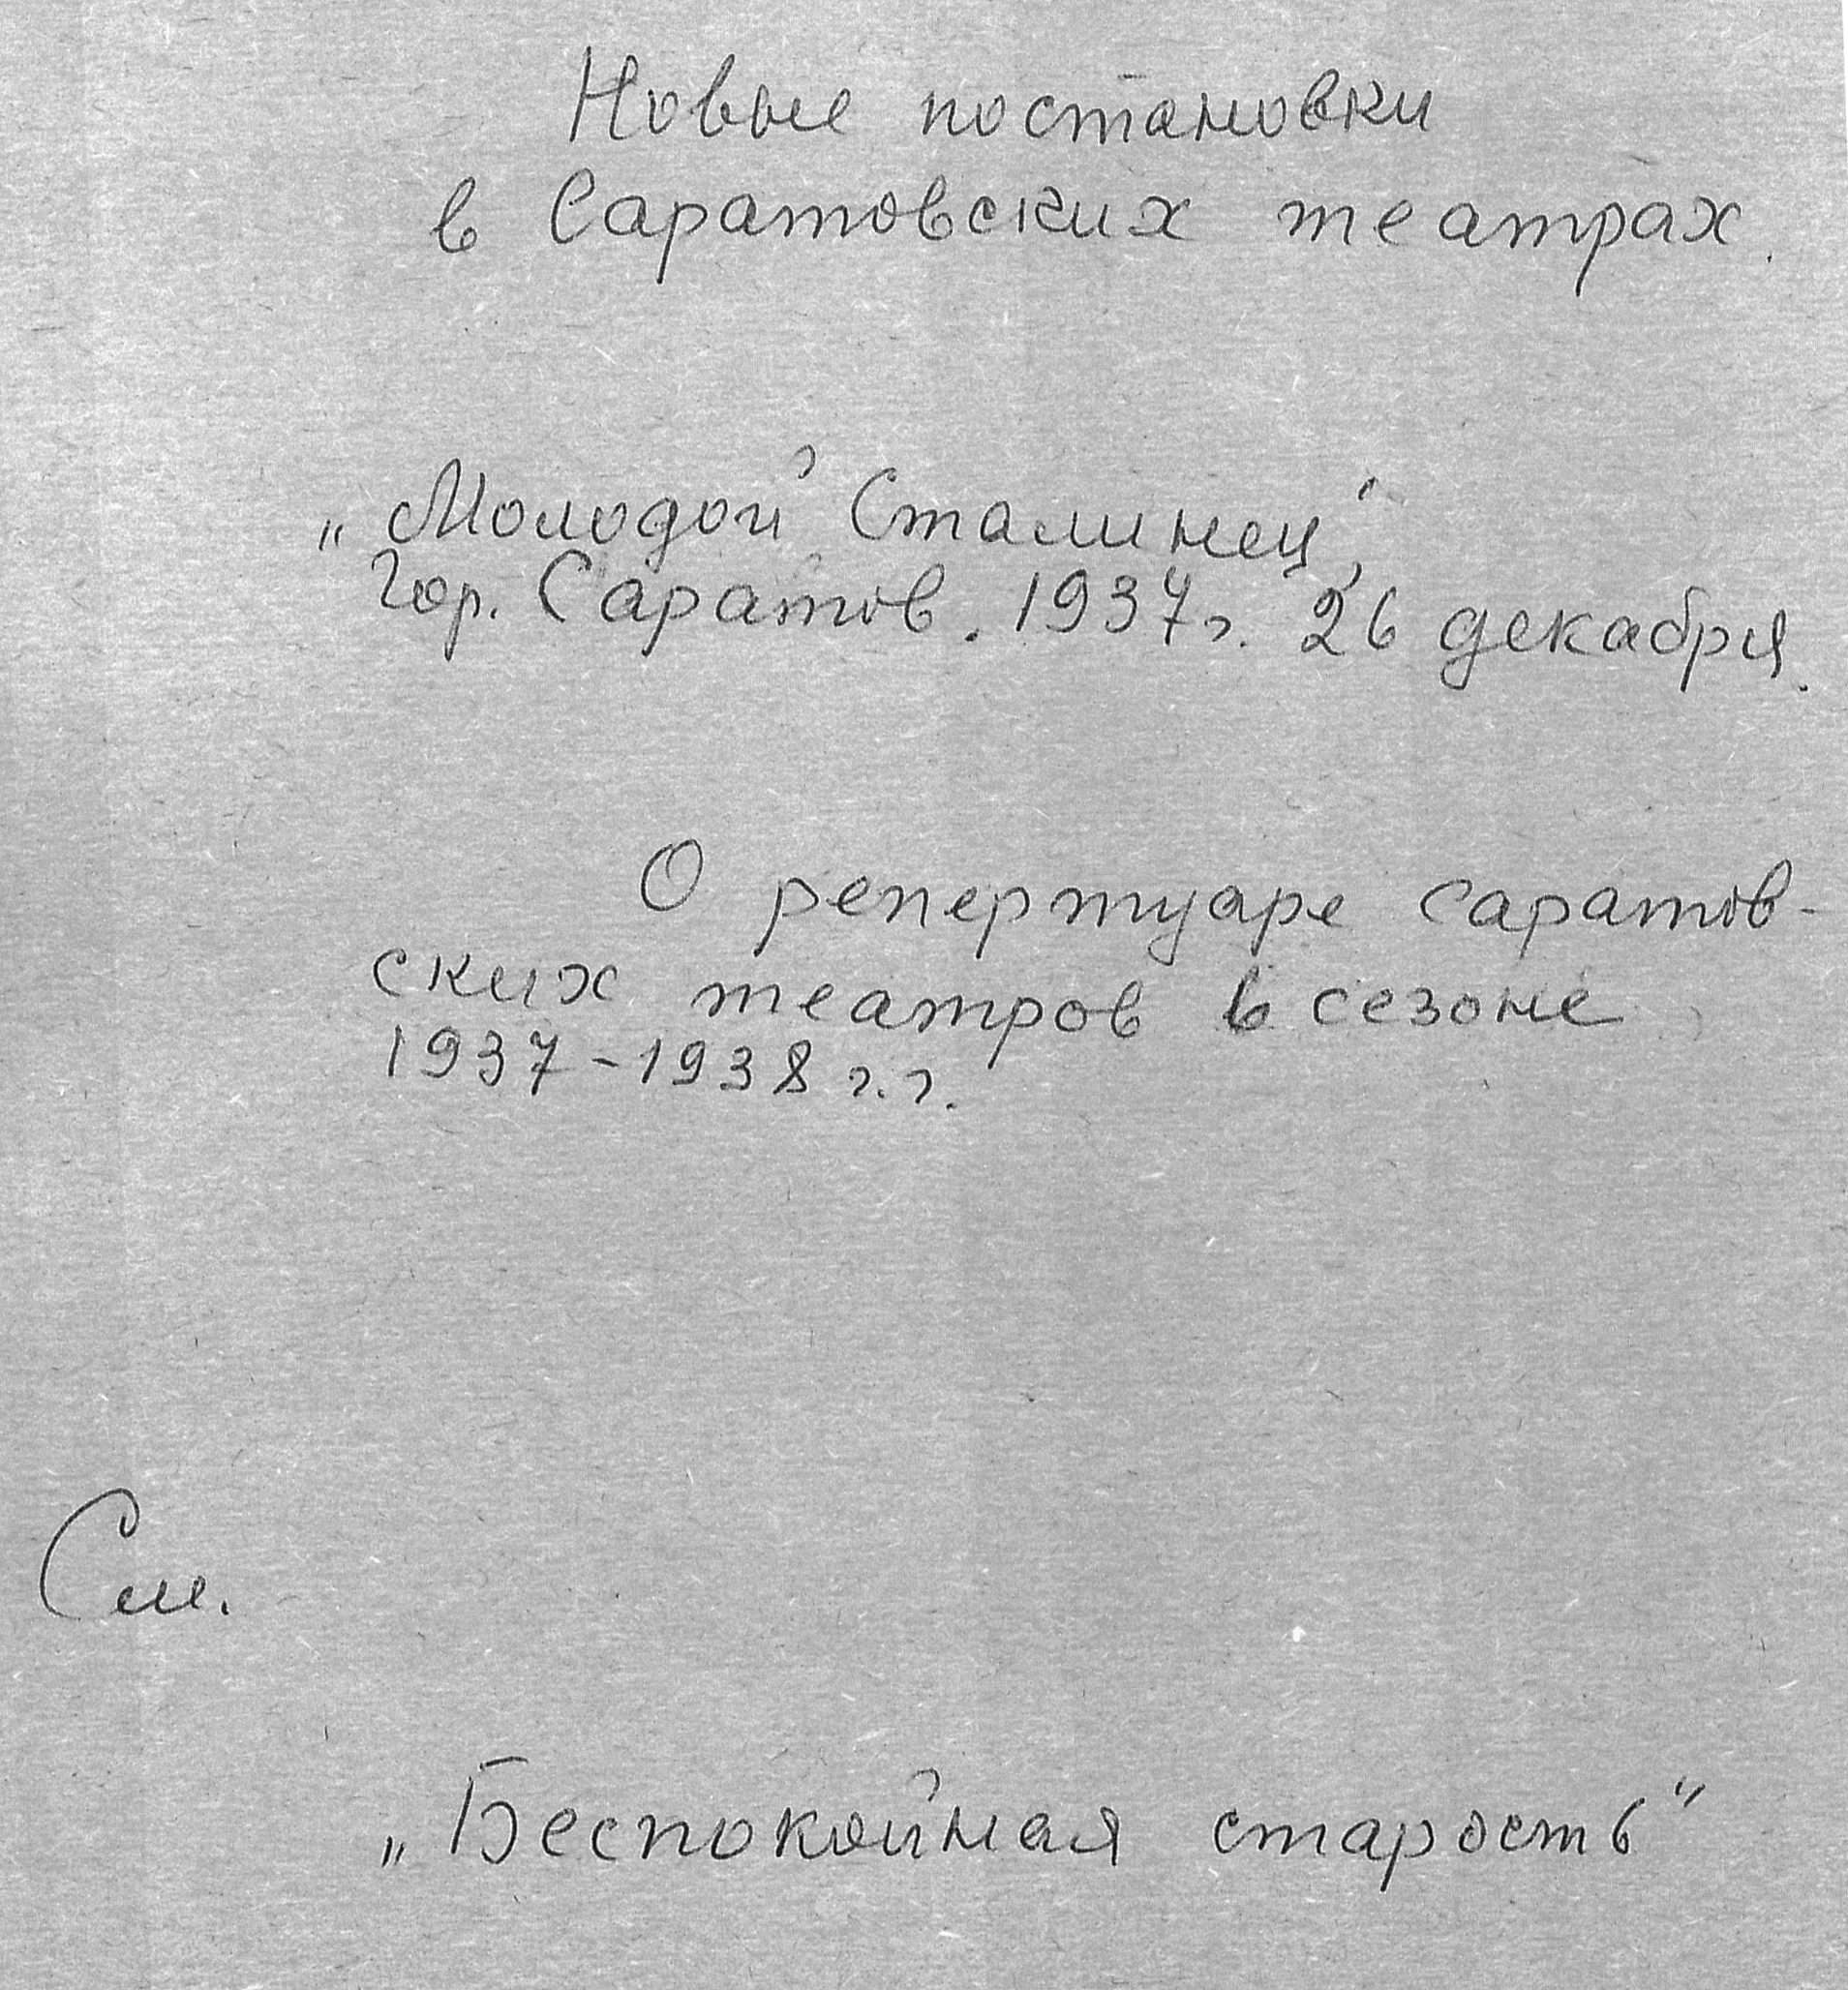 Новые постановки
в Саратовских театрах.
„Молодой Сталинец“,
Гор. Саратов. 1937 г. 26 декабря.
О репертуаре саратов-
ских театров в сезоне
1937-1938 г.г.
См.
„Беспокойная старость“